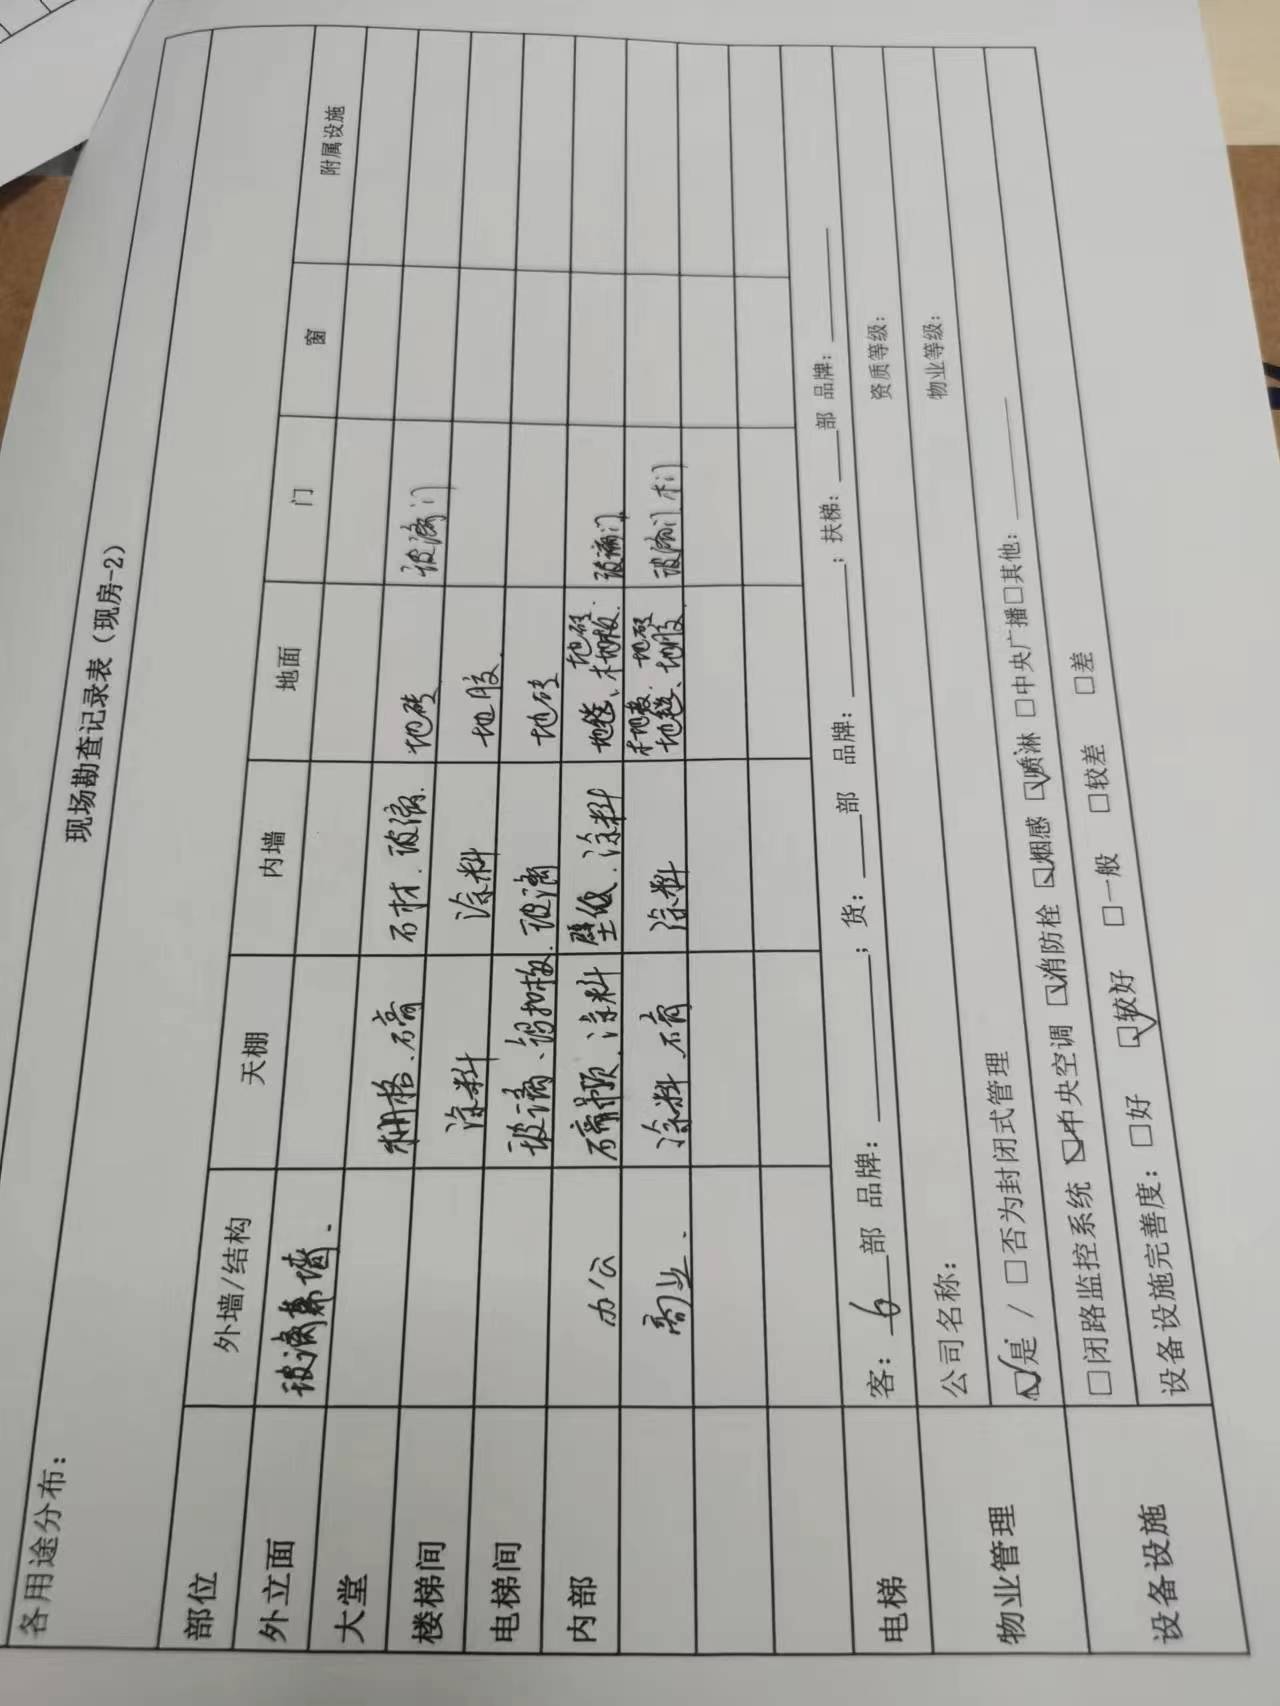 现场勘查记录表（现房-2）
各用途分布：
部位 外墙/结构 天棚 内墙 地面 门 窗 附属设施
外立面 玻璃幕墙.
大堂 栅格、石膏 石材、玻璃. 地砖 玻璃门
楼梯间 涂料 涂料 地胶.
电梯间 玻璃、铝扣板. 玻璃 地砖
内部 办公 石膏吊顶、涂料 壁纸、涂料 地毯、木地板. 地砖 玻璃门
商业. 涂料 石膏 涂料 木地板. 地砖 地毯、地胶 玻璃门. 木门
电梯 客：6部 品牌：；货：部 品牌：；扶梯：部 品牌：
物业管理 公司名称： 资质等级：
☑是 / □否为封闭式管理 物业等级：
设备设施 □闭路监控系统 ☑中央空调 ☑消防栓 ☑烟感 ☑喷淋 □中央广播 □其他：
设备设施完善度：□好 ☑较好 □一般 □较差 □差